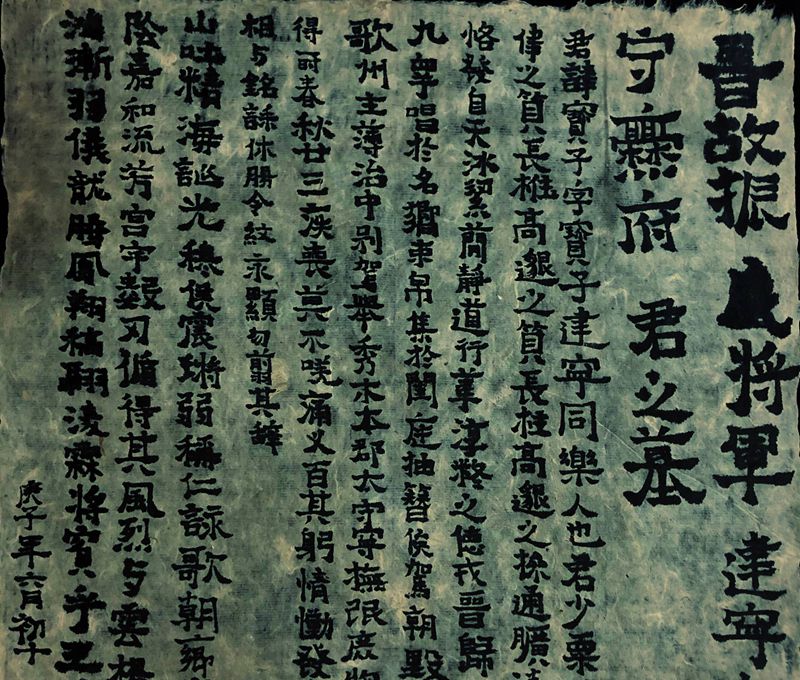 晉故振威將軍建寧
守爨府君之墓
君諱寶子字寶子建寧同樂人也君少稟
偉之質長挺高邈之質長挺高邈之操通曠
恪發自天冰絜簡靜道行葦淳粹之德戎晉歸
九皋唱於名嚮束帛集於閨庭抽簪俟駕朝野
歌州主薄治中别駕舉秀才本郡太守寧撫氓庶物
得所春秋廿三疾喪莫不嗟痛人百其躬情慟發
相与銘誄休勝令紋永顯勿翦其辭
山吐精海誕光穆侯震璘弱稱仁詠歌朝鄉
陰嘉和流芳宮宇數刃循得其風烈与雲
鴻漸羽儀龍騰鳳翔矯翮淩霖將賓乎王
庚子年六月初十